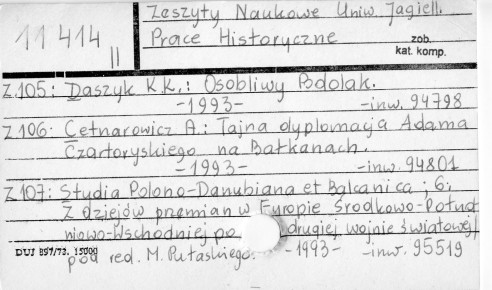 Zeszyty Naukowe Uniw. Jagiell.
11414
II
Prace Historyczne
zob.
kat. komp.
Z.105: Daszyk K.K.: Osobliwy Podolak.
-1993- -inw. 94798
Z.106: Cetnarowicz A.: Tajna dyplomacja Adama
Czartoryskiego na Bałkanach.
-1993- -inw. 94801
Z.107: Studia Polono-Danubiana et Balcanica ; 6:
Z dziejów przemian w Europie Środkowo-Połud
niowo-Wschodniej po drugiej wojnie światowej/
pod red. M. Pułaskiego. -1993- -inw. 95519
DUJ 897/73. 15000